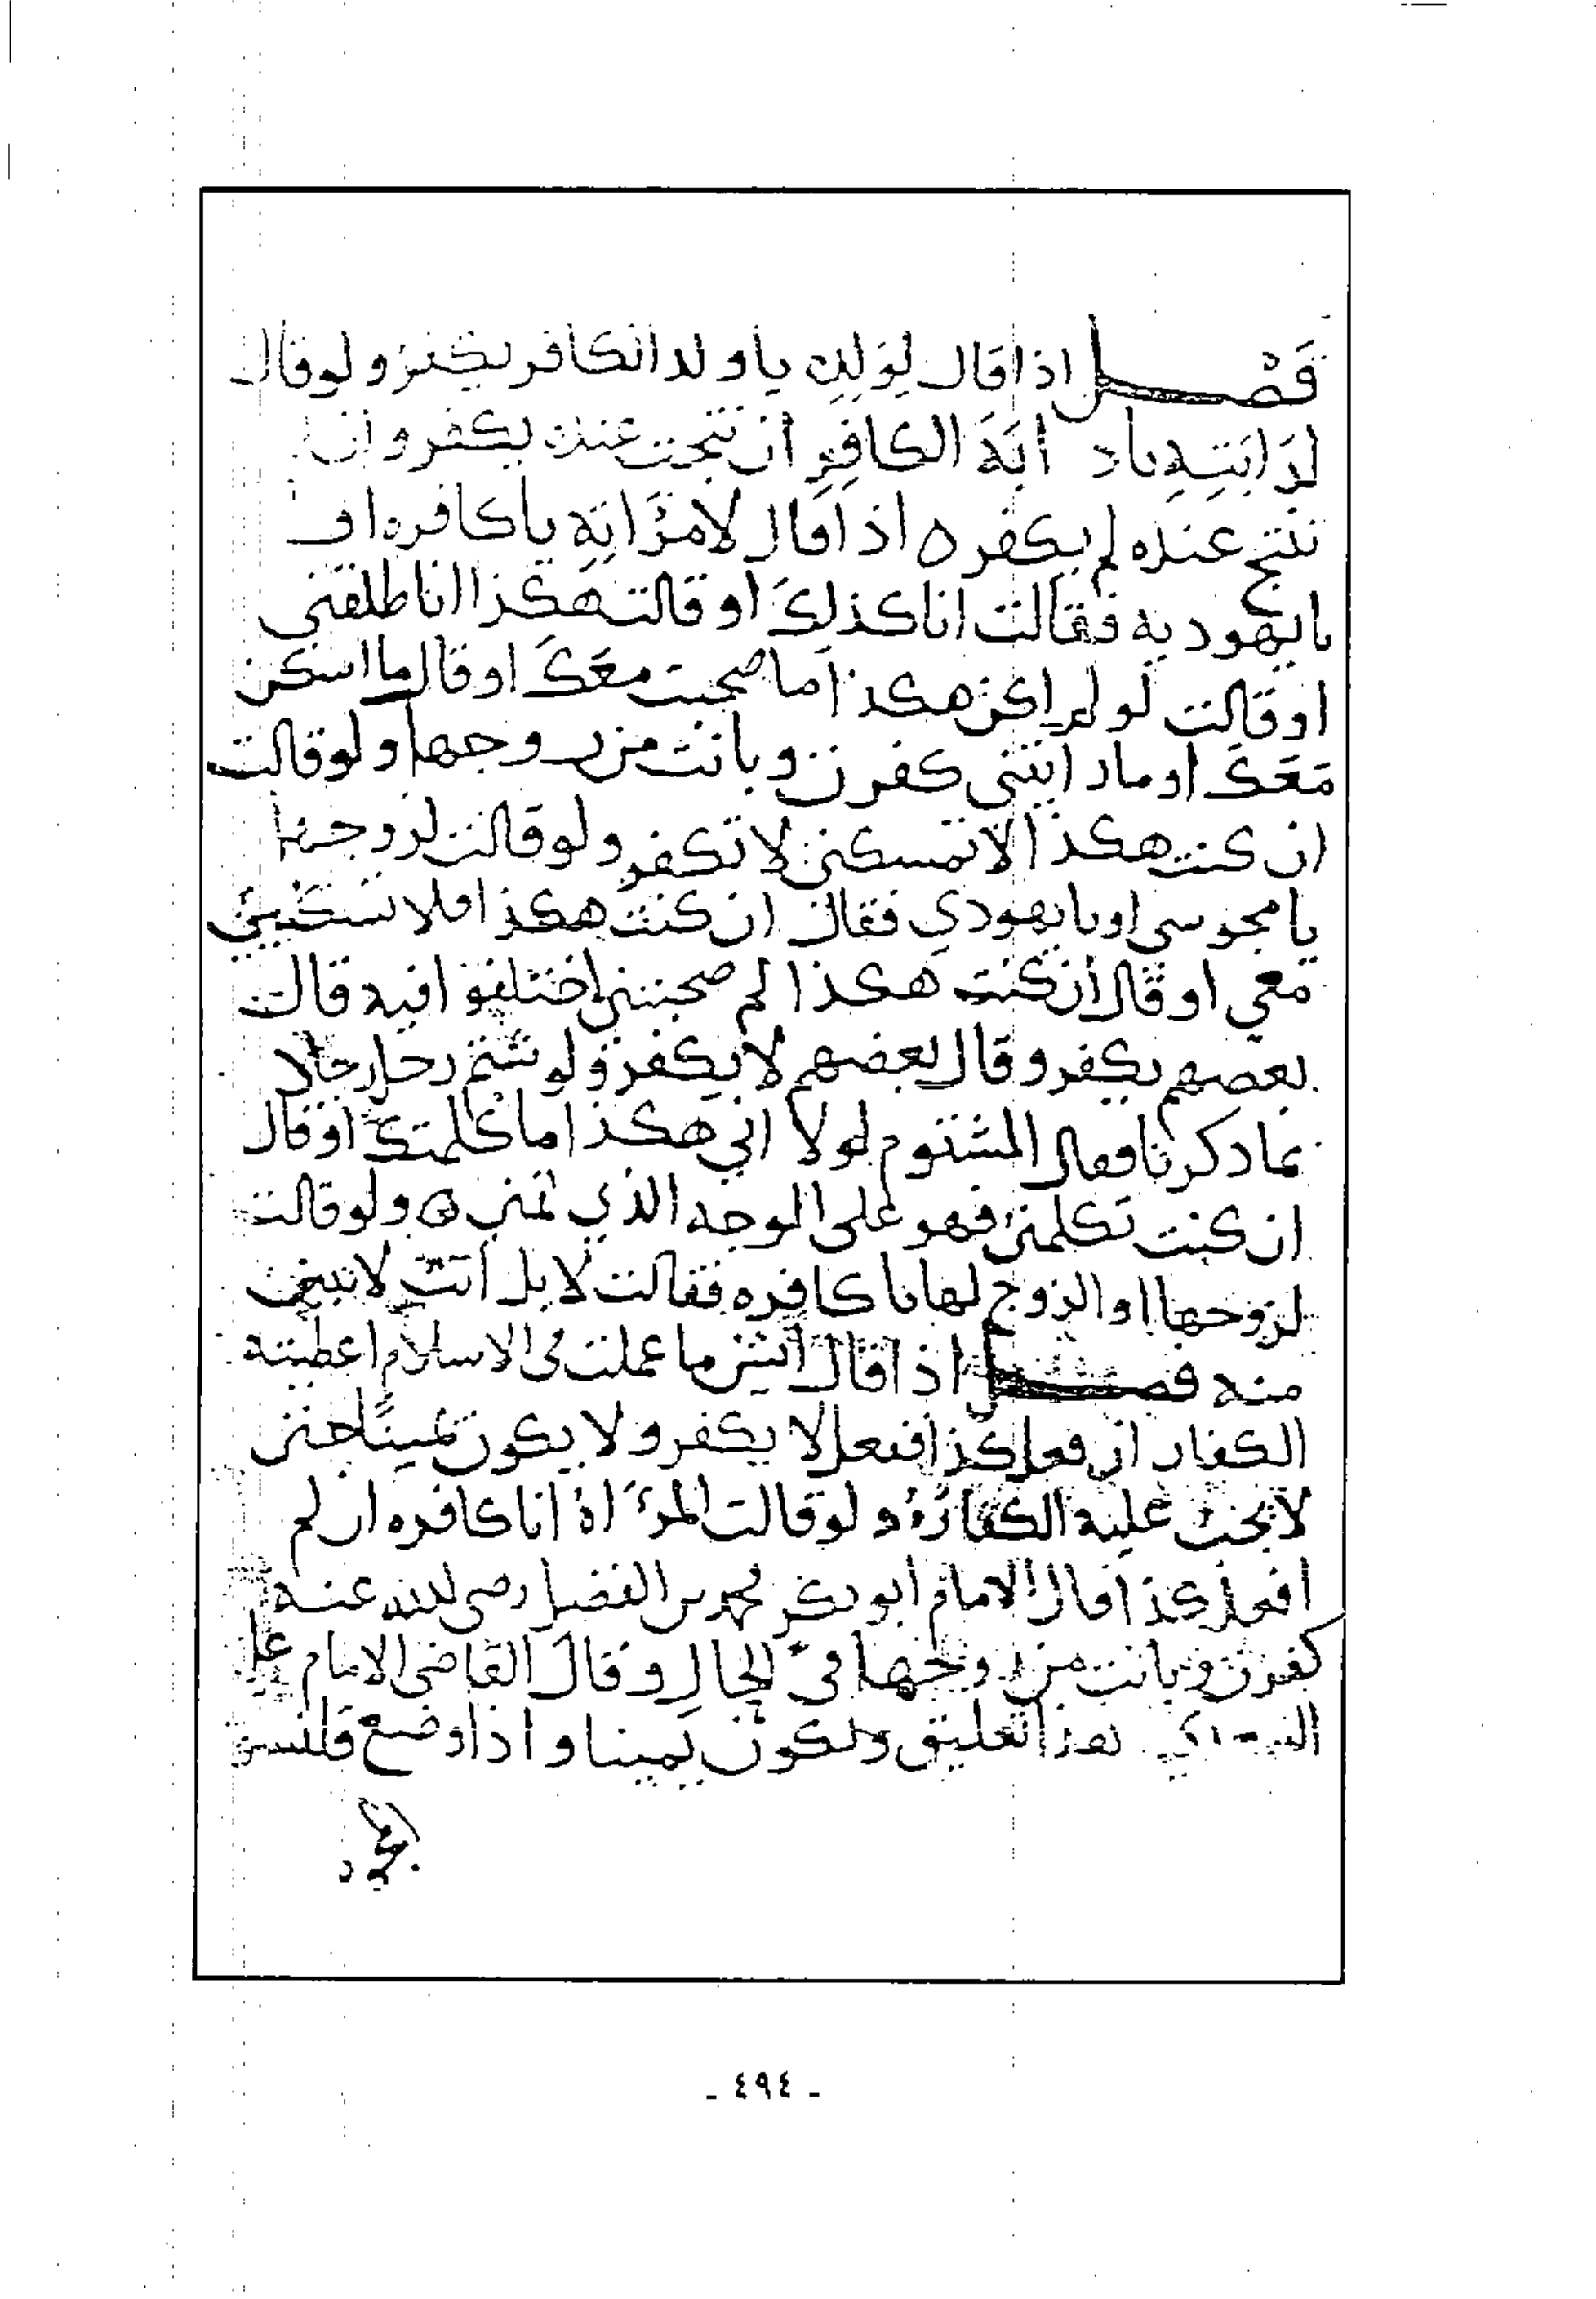 فَصْل اذا قال لوَلَدِه يا ولد الكافر يكفر ولو قال
لدَابَتِهِ يا دابَةَ الكافِرِ ان نتجت عنده يكفر وان لم
تنتج عنده لم يكفر ه اذا قال لامرَاتِهِ يا كافره او
يا يهوديه فقالت انا كذلكَ او قالت هكذا انا طلقني
او قالت لو لم اكن هكذا ما صحبت معَكَ او قال ما اسكن
مَعَكَ او ما رايتني كفرت وبانت من زوجها ولو قالت
ان كنت هكذا لا تمسكني لا تكفر ولو قالت لزوجها
يا مجوسي او يا يهودي فقال ان كنت هكذا فلا تسكني
معي او قال ان كنت هكذا لم صحبتني اختلفوا فيه قال
بعضهم يكفر وقال بعضهم لا يكفر ولو شتم رجل رجلا
بما ذكرنا فقال المشتوم لولا اني هكذا ما كلمتك او قال
ان كنت تكلمني فهو على الوجه الذي ه ولو قالت
لزوجها او الزوج لها يا كافره فقالت لا بل انت لا تبين
منه فصل اذا قال ايش ما عملت في الاسلام اعطيته
الكفار ان فعل كذا ففعل لا يكفر ولا يكون يمينًا حتى
لا يجب عليه الكفارة ولو قالت المراة انا كافره ان لم
افعل كذا قال الامام ابو بكر محمد بن الفضل رضي الله عنه
كفرت وبانت من زوجها في الحال وقال القاضي الامام علي
هذا تعليق ويكون يمينا واذا وضع قلنسوة
- ٤٩٤ -